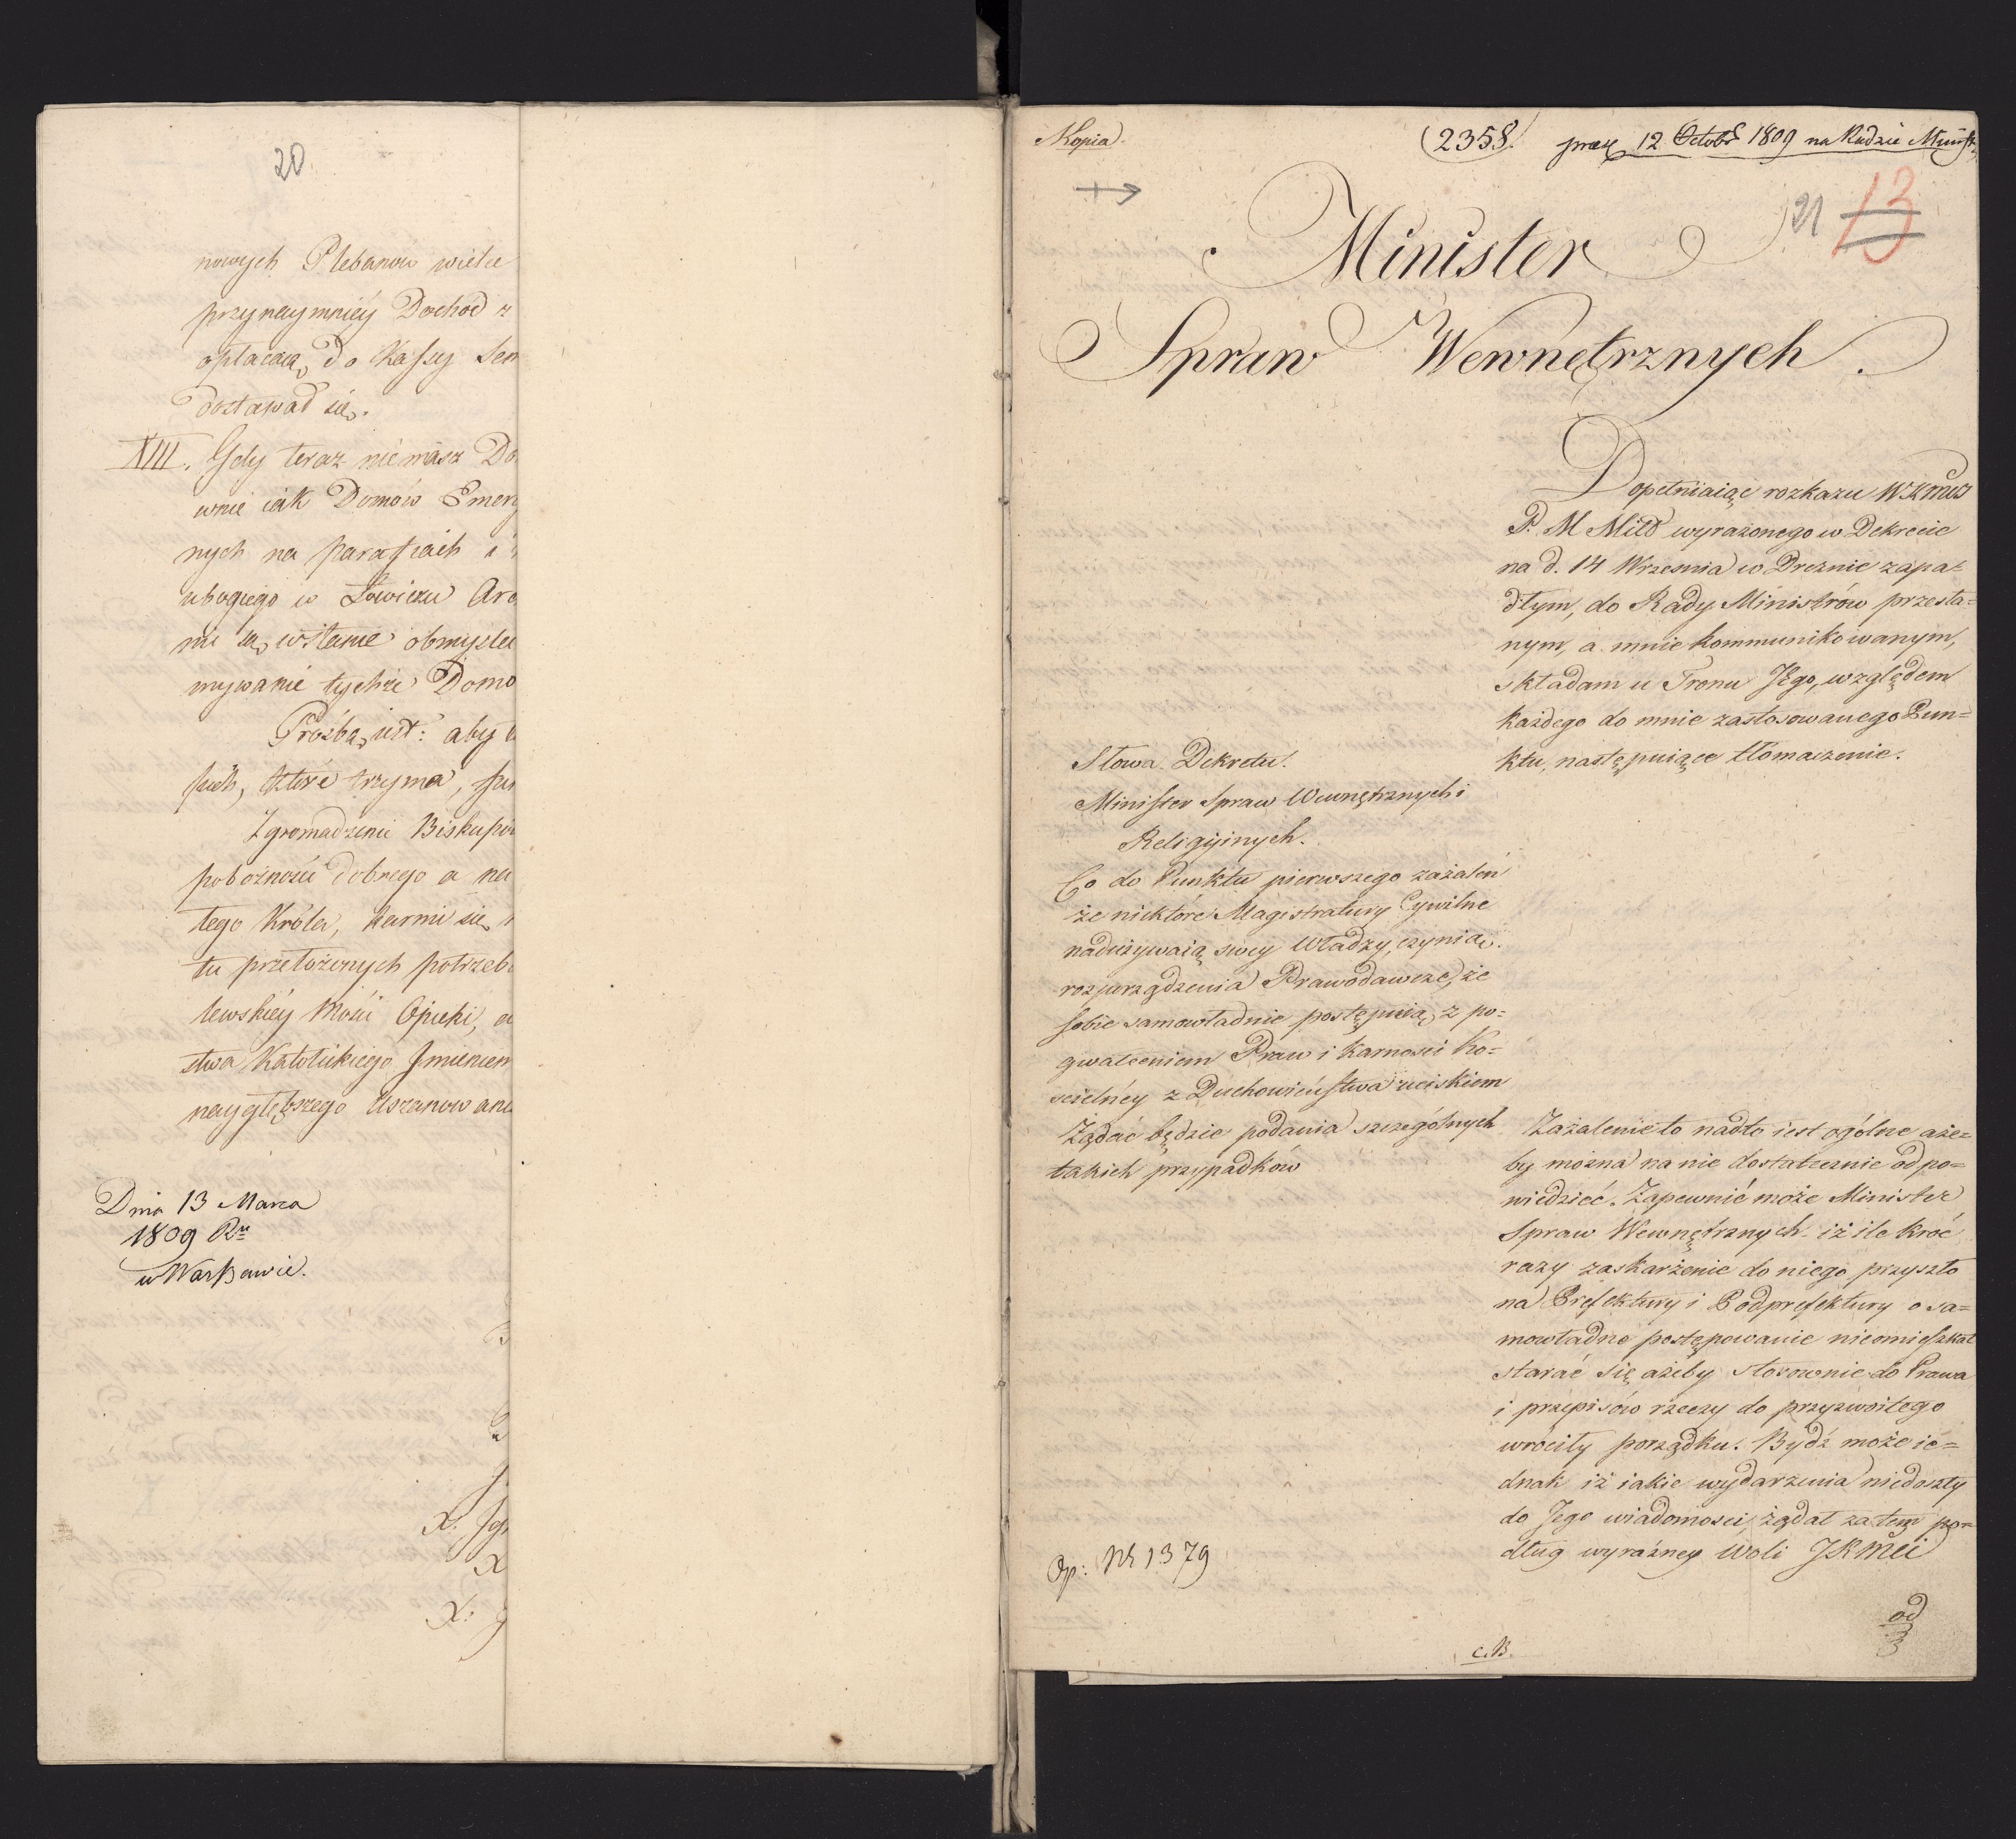 20
nowych Plebanow wielu
przynaymniéy Dochod z
opłacaią do Kassy Sem
dostawał się.
XIII. Gdy teraz niemasz Do
wnie iak Domów Emery
nych na parafiach i
ubogiego w Łowiczu Arc
nie są wstanie obmyslic
mywanie tychże Domo
Prośbą iest: aby
skich, które trzyma,
Zgromadzenie Biskupów
pobożności dobrego a na
tego Króla, karmi się
tu przełożonych potrzeb
lewskiéy Mości Opieki, a
stwa Katolickiego Imieniem
naygłębszego Uszanowani
Dnia 13 Marca
1809 Ru
w Warszawie.
X.
X
X.
Kopia.
(2358.) præs 12 Octobr 1809 na Radzie Minist
21 13
Minister
Spraw Wewnętrznych.
Dopełniaiąc rozkazu WKMci
P. M Miłł wyrażonego w Dekrecie
na d. 14 Wrzesnia w Dreznie zapa=
dłym, do Rady Ministrów przesła=
nym, a mnie kommunikowanym,
składam u Tronu Jego, względem
każdego do mnie zastosowanego Pun=
ktu, następuiące tłómaczenie.
Słowa Dekretu.
Minister Spraw Wewnętrznych i
Religiynych.
Co do Punktu pierwszego zażaleń
że niektóre Magistratury Cywilne
nadużywaią swey Władzy, czynią
rozporządzenia Prawodawcze, że
sobie samowładnie postępuią, z po=
gwałceniem Praw i karnosci Ko=
scielnéy z Duchowieństwa uciskiem
Żądać będzie podania szczególnych
takich przypadków
Zażalenie to nadto iest ogólne aże=
by można na nie dostatecznie odpo=
wiedzieć. Zapewnić może Minister
Spraw Wewnętrznych iż ile kroć
razy zaskarżenie do niego przyszło
na Prefektury i Podprefektury o sa=
mowładne postępowanie nieomieszkał
starać się ażeby stosownie do Prawa
i przepisów rzeczy do przyzwoitego
wróciły porządku. Bydź może ie=
dnak iż iakie wydarzenia niedoszły
do Jego wiadomosci, żądał zatem po=
dług wyraźney Woli JKMci
Op: Nr 1379
od
c.B.